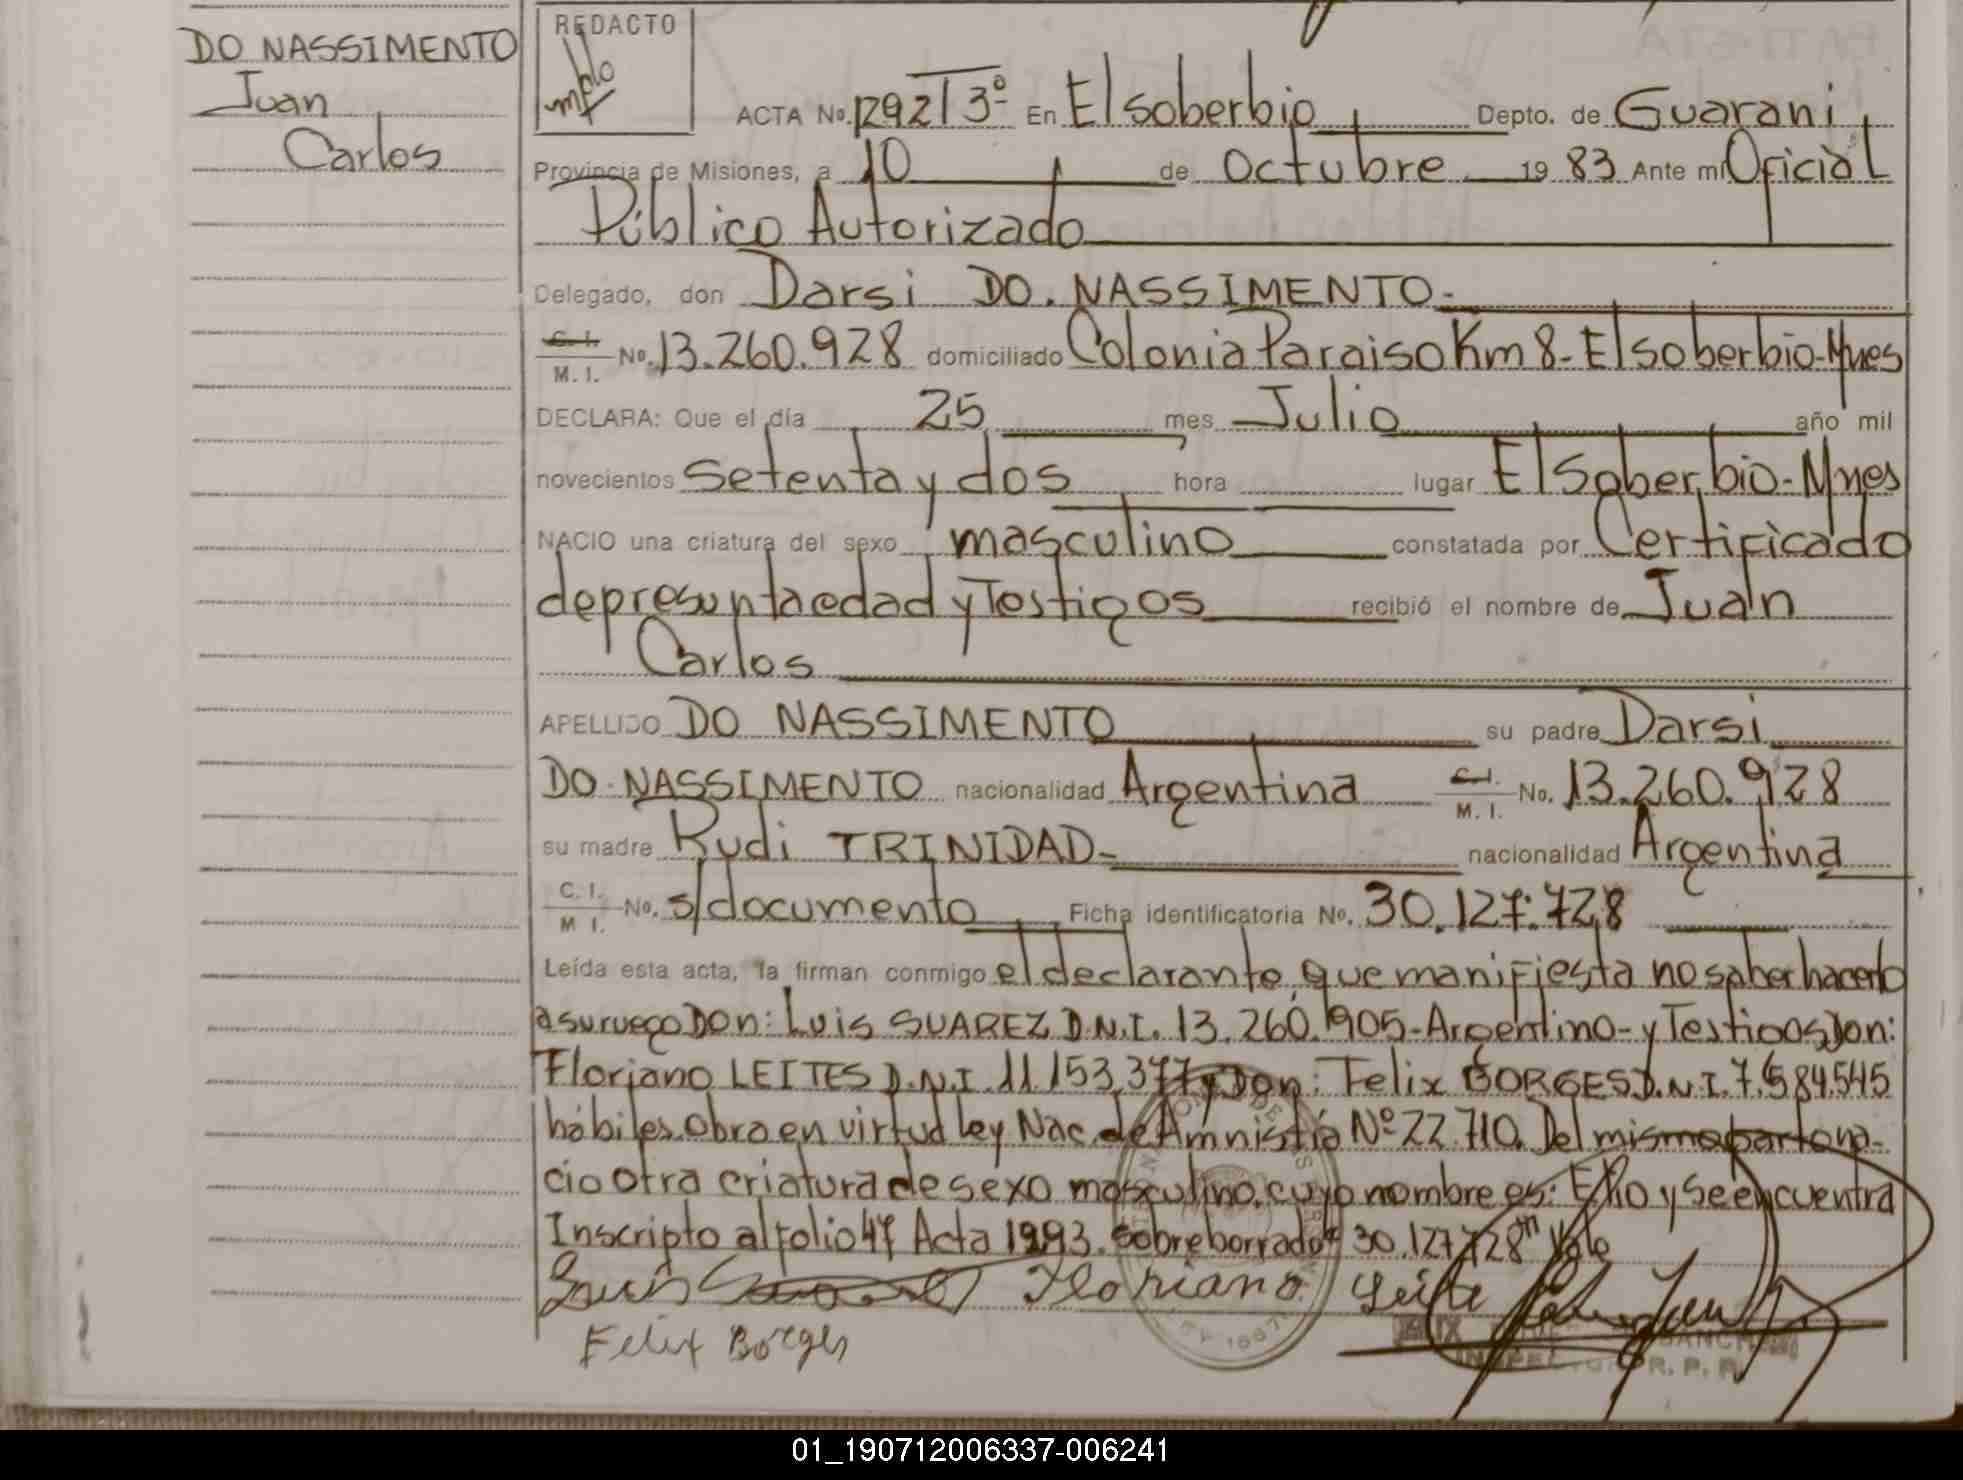 DO NASSIMENTO
Juan
Carlos
REDACTO
ACTA No. 1292 T 3º En El soberbio Depto. de Guarani
Provincia de Misiones, a 10 de Octubre 19 83 Ante mi Oficial
Público Autorizado
Delegado, don Darsi DO NASSIMENTO-
C. I.
M. I. No. 13.260.928 domiciliado Colonia Paraiso Km 8- El soberbio-Mnes
DECLARA: Que el día 25 mes Julio año mil
novecientos setenta y dos hora lugar El Soberbio-Mnes
NACIO una criatura del sexo masculino constatada por Certificado
de presunta edad y Testigos recibió el nombre de Juan
Carlos
APELLIDO DO NASSIMENTO su padre Darsi
DO NASSIMENTO nacionalidad Argentina C. I. M. I. No. 13.260.928
su madre Rudi TRINIDAD- nacionalidad Argentina
C. I. M. I. No. s/documento Ficha identificatoria No. 30.127.728
Leída esta acta, la firman conmigo el declarante, que manifiesta no saber hacerlo
a su ruego Don: Luis SUAREZ D.N.I. 13.260.905-Argentino-y Testigos Don:
Floriano LEITES D.N.I. 11.153.377 y Don: Felix BORGES D.N.I. 7.584.545
hábiles. Obra en virtud ley Nac. de Amnistía Nº 22.710. Del mismo parto na-
cio otra criatura de sexo masculino, cuyo nombre es: Elio y se encuentra
Inscripto al folio 47 Acta 1293. Sobreborrado "30.127.728" Vale
Luis Floriano Leite
Felix Borges
INSPECTOR R. P. P.
01_190712006337-006241